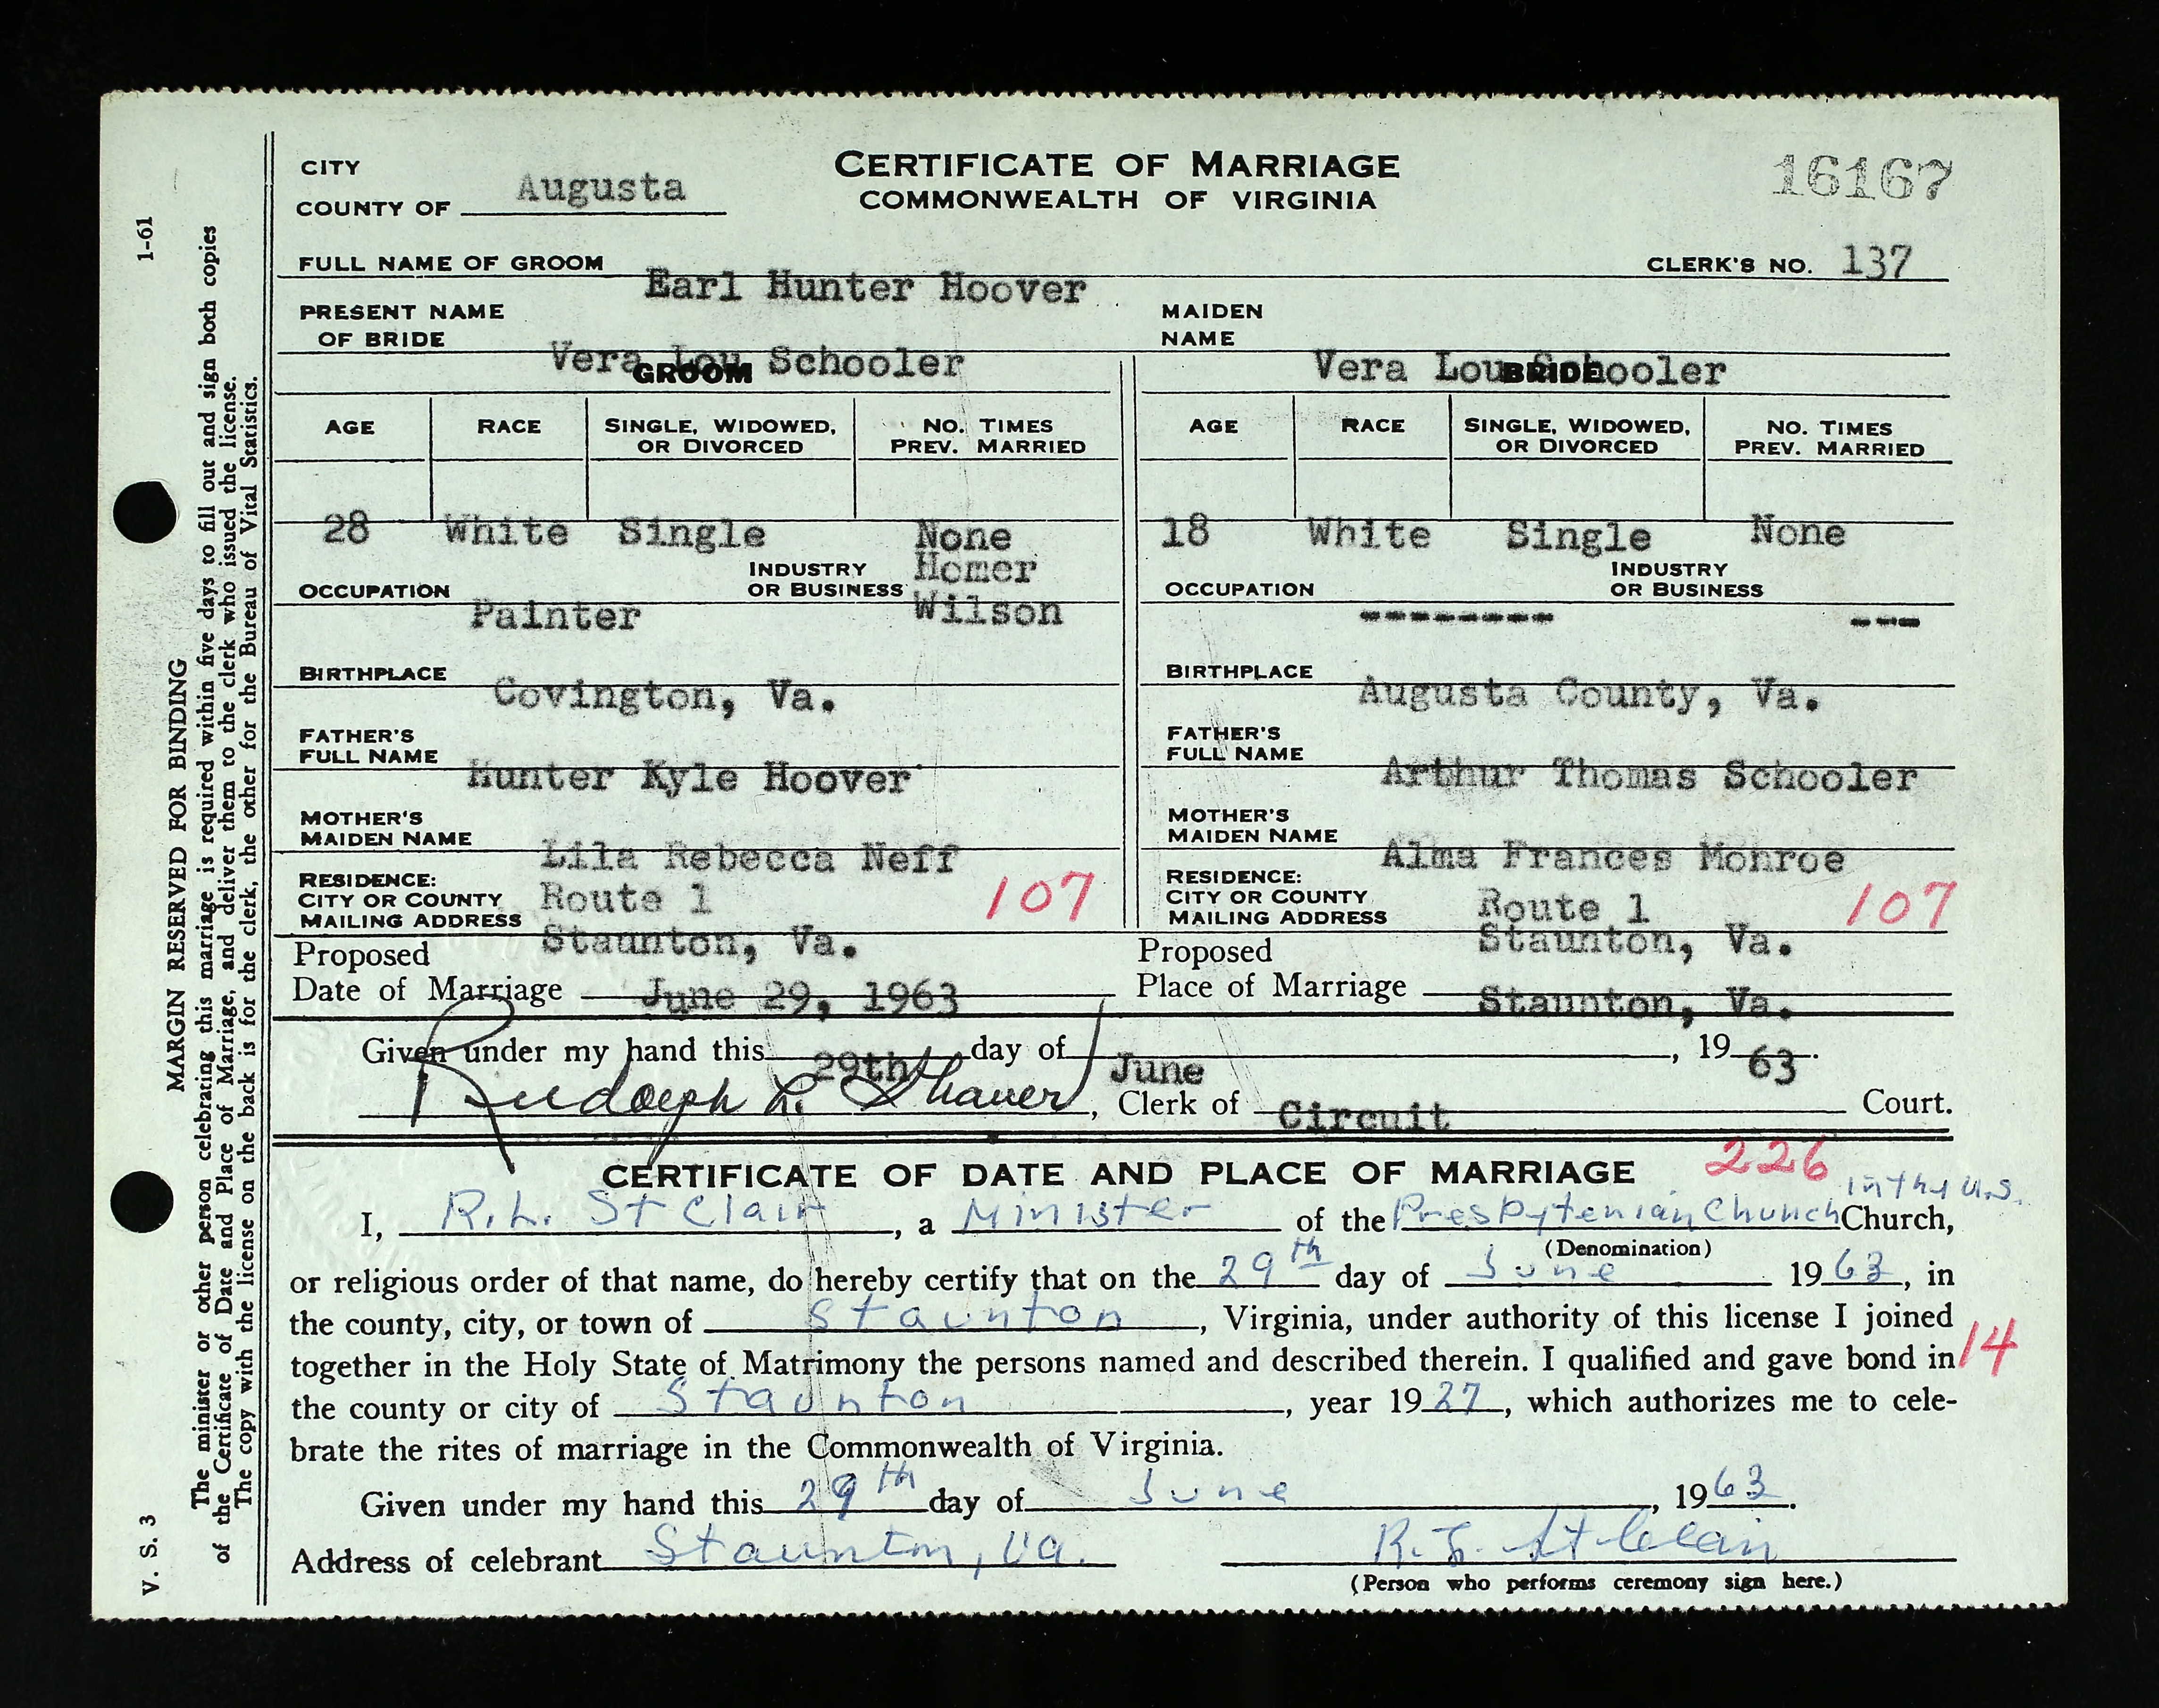 CITY
COUNTY OF Augusta
CERTIFICATE OF MARRIAGE
COMMONWEALTH OF VIRGINIA
16167
FULL NAME OF GROOM Earl Hunter Hoover
CLERK'S NO. 137
PRESENT NAME
OF BRIDE Vera Lou Schooler
MAIDEN
NAME Vera Lou Schooler
GROOM
BRIDE
AGE RACE SINGLE, WIDOWED, OR DIVORCED NO. TIMES PREV. MARRIED
AGE RACE SINGLE, WIDOWED, OR DIVORCED NO. TIMES PREV. MARRIED
28 White Single None
18 White Single None
OCCUPATION Painter INDUSTRY OR BUSINESS Homer Wilson
OCCUPATION -------- INDUSTRY OR BUSINESS ---
BIRTHPLACE Covington, Va.
BIRTHPLACE Augusta County, Va.
FATHER'S
FULL NAME Hunter Kyle Hoover
FATHER'S
FULL NAME Arthur Thomas Schooler
MOTHER'S
MAIDEN NAME Lila Rebecca Neff
MOTHER'S
MAIDEN NAME Alma Frances Monroe
RESIDENCE:
CITY OR COUNTY Route 1 107
MAILING ADDRESS Staunton, Va.
RESIDENCE:
CITY OR COUNTY Route 1 107
MAILING ADDRESS Staunton, Va.
Proposed
Date of Marriage June 29, 1963
Proposed
Place of Marriage Staunton, Va.
Given under my hand this 29th day of June, 1963.
Rudolph L. Shaver, Clerk of Circuit Court.
CERTIFICATE OF DATE AND PLACE OF MARRIAGE 226
in the U.S.
I, R.L. St Clair, a Minister of the Presbyterian Church Church,
(Denomination)
or religious order of that name, do hereby certify that on the 29th day of June 1963, in
the county, city, or town of Staunton, Virginia, under authority of this license I joined
together in the Holy State of Matrimony the persons named and described therein. I qualified and gave bond in 14
the county or city of Staunton, year 1927, which authorizes me to cele-
brate the rites of marriage in the Commonwealth of Virginia.
Given under my hand this 29th day of June, 1963.
Address of celebrant Staunton, Va. R. L. St Clair
(Person who performs ceremony sign here.)
V. S. 3
1-61
MARGIN RESERVED FOR BINDING
The minister or other person celebrating this marriage is required within five days to fill out and sign both copies
of the Certificate of Date and Place of Marriage, and deliver them to the clerk who issued the license.
The copy with the license on the back is for the clerk, the other for the Bureau of Vital Statistics.